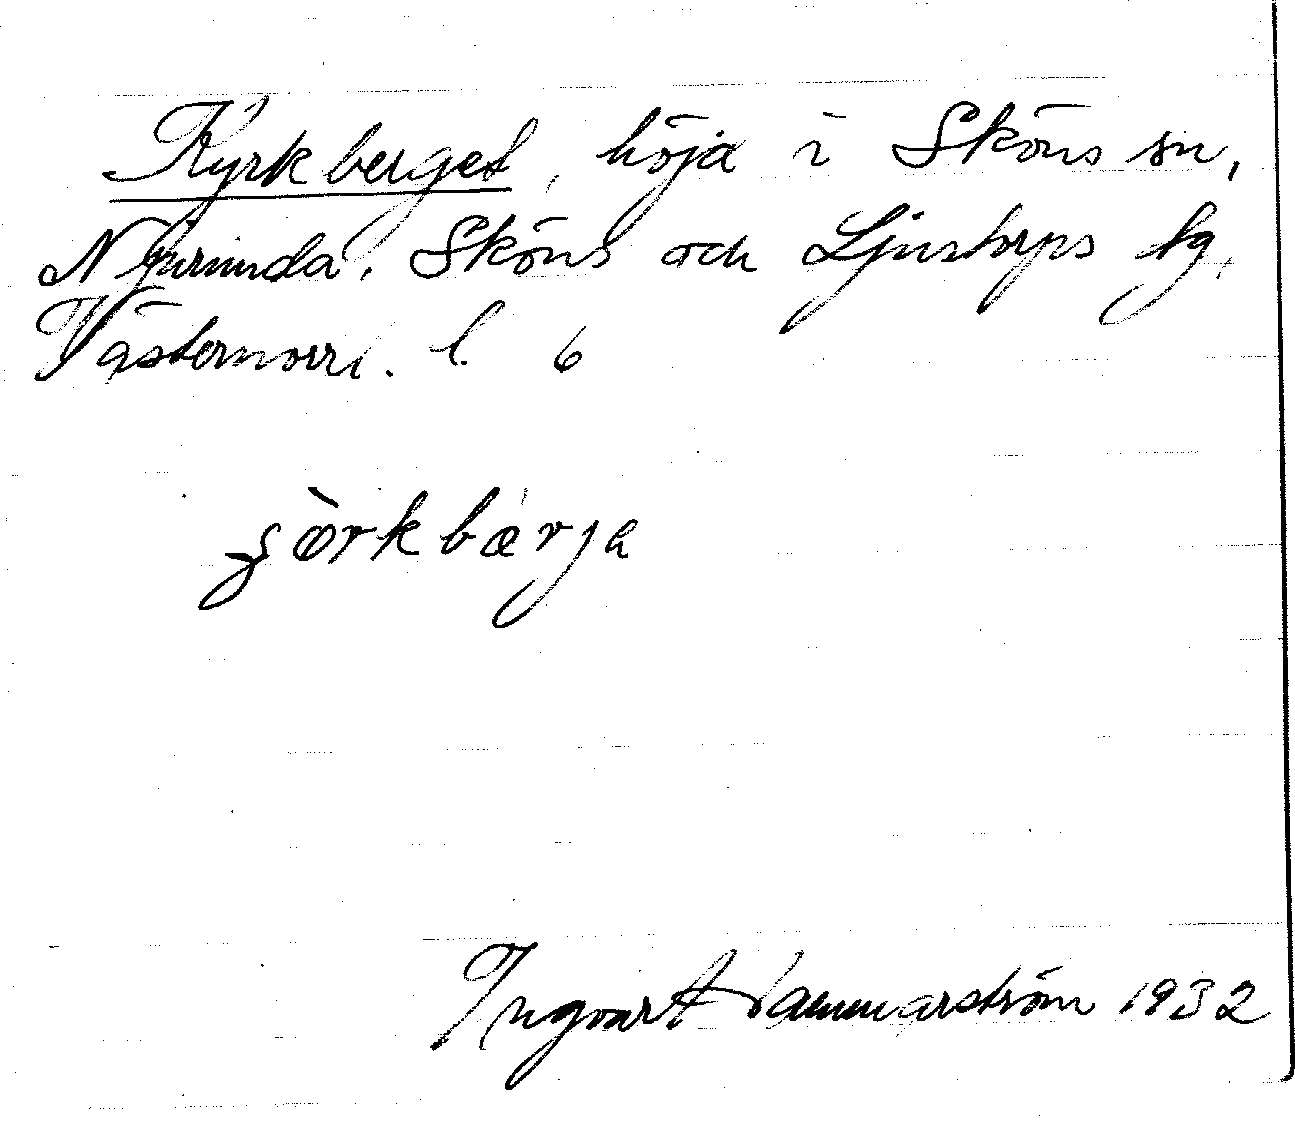 Kyrkberget, höjd i Sköns sn,
Njurunda, Sköns och Ljustorps tg,
Västernorrl. l. 6
ʂörkbærja
Ingvart Hammarström 1932